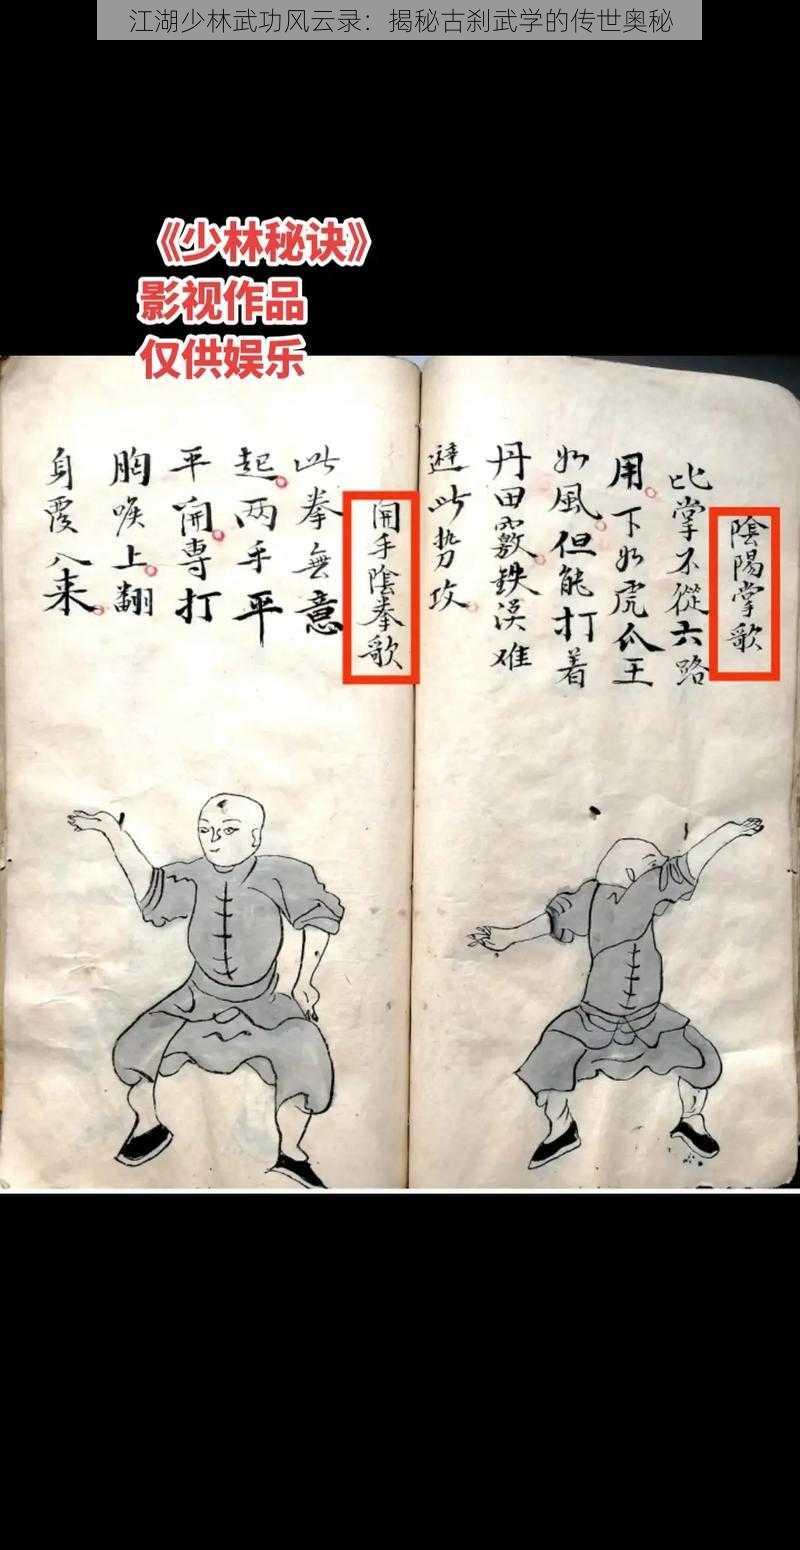 江湖少林武功风云录：揭秘古刹武学的传世奥秘
《少林秘诀》
影视作品
仅供娱乐
陰陽掌歌
比掌不從六路
用下如虎爪王
如風但能打着
丹田竅鉄漢难
避此势攻
開手陰拳歌
此拳無意
起两手平
平開專打
胸喉上翻
身覆入来